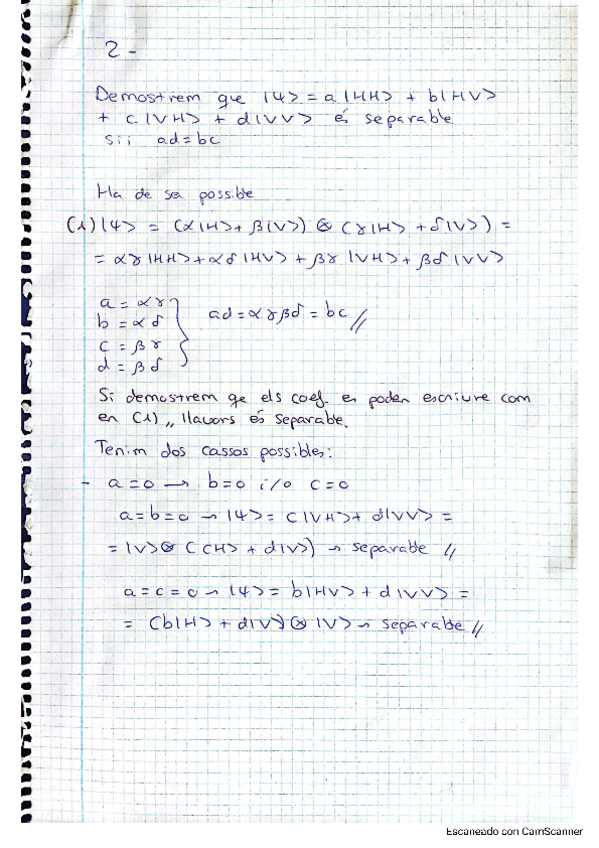 2-
Demostrem que |ψ> = a|HH> + b|HV>
+ c|VH> + d|VV> és separable
sii ad=bc
Ha de ser possible
(1) |ψ> = (α|H>+ β|V>) ⊗ (γ|H> + δ|V>) =
= αγ|HH>+αδ|HV> + βγ|VH>+βδ|VV>
a = αγ
b = αδ
c = βγ
d = βδ
ad=αγβδ = bc //
Si demostrem qe els coef. es poden escriure com
en (1),, llavors és separable.
Tenim dos cassos possibles:
- a=0 → b=0 i/o c=0
a=b=0 → |ψ> = c|VH>+ d|VV> =
= |V>⊗ (c|H> + d|V>) → separable //
a=c=0 → |ψ> = b|HV> + d|VV> =
= (b|H> + d|V>)⊗|V> → separable //
Escaneado con CamScanner